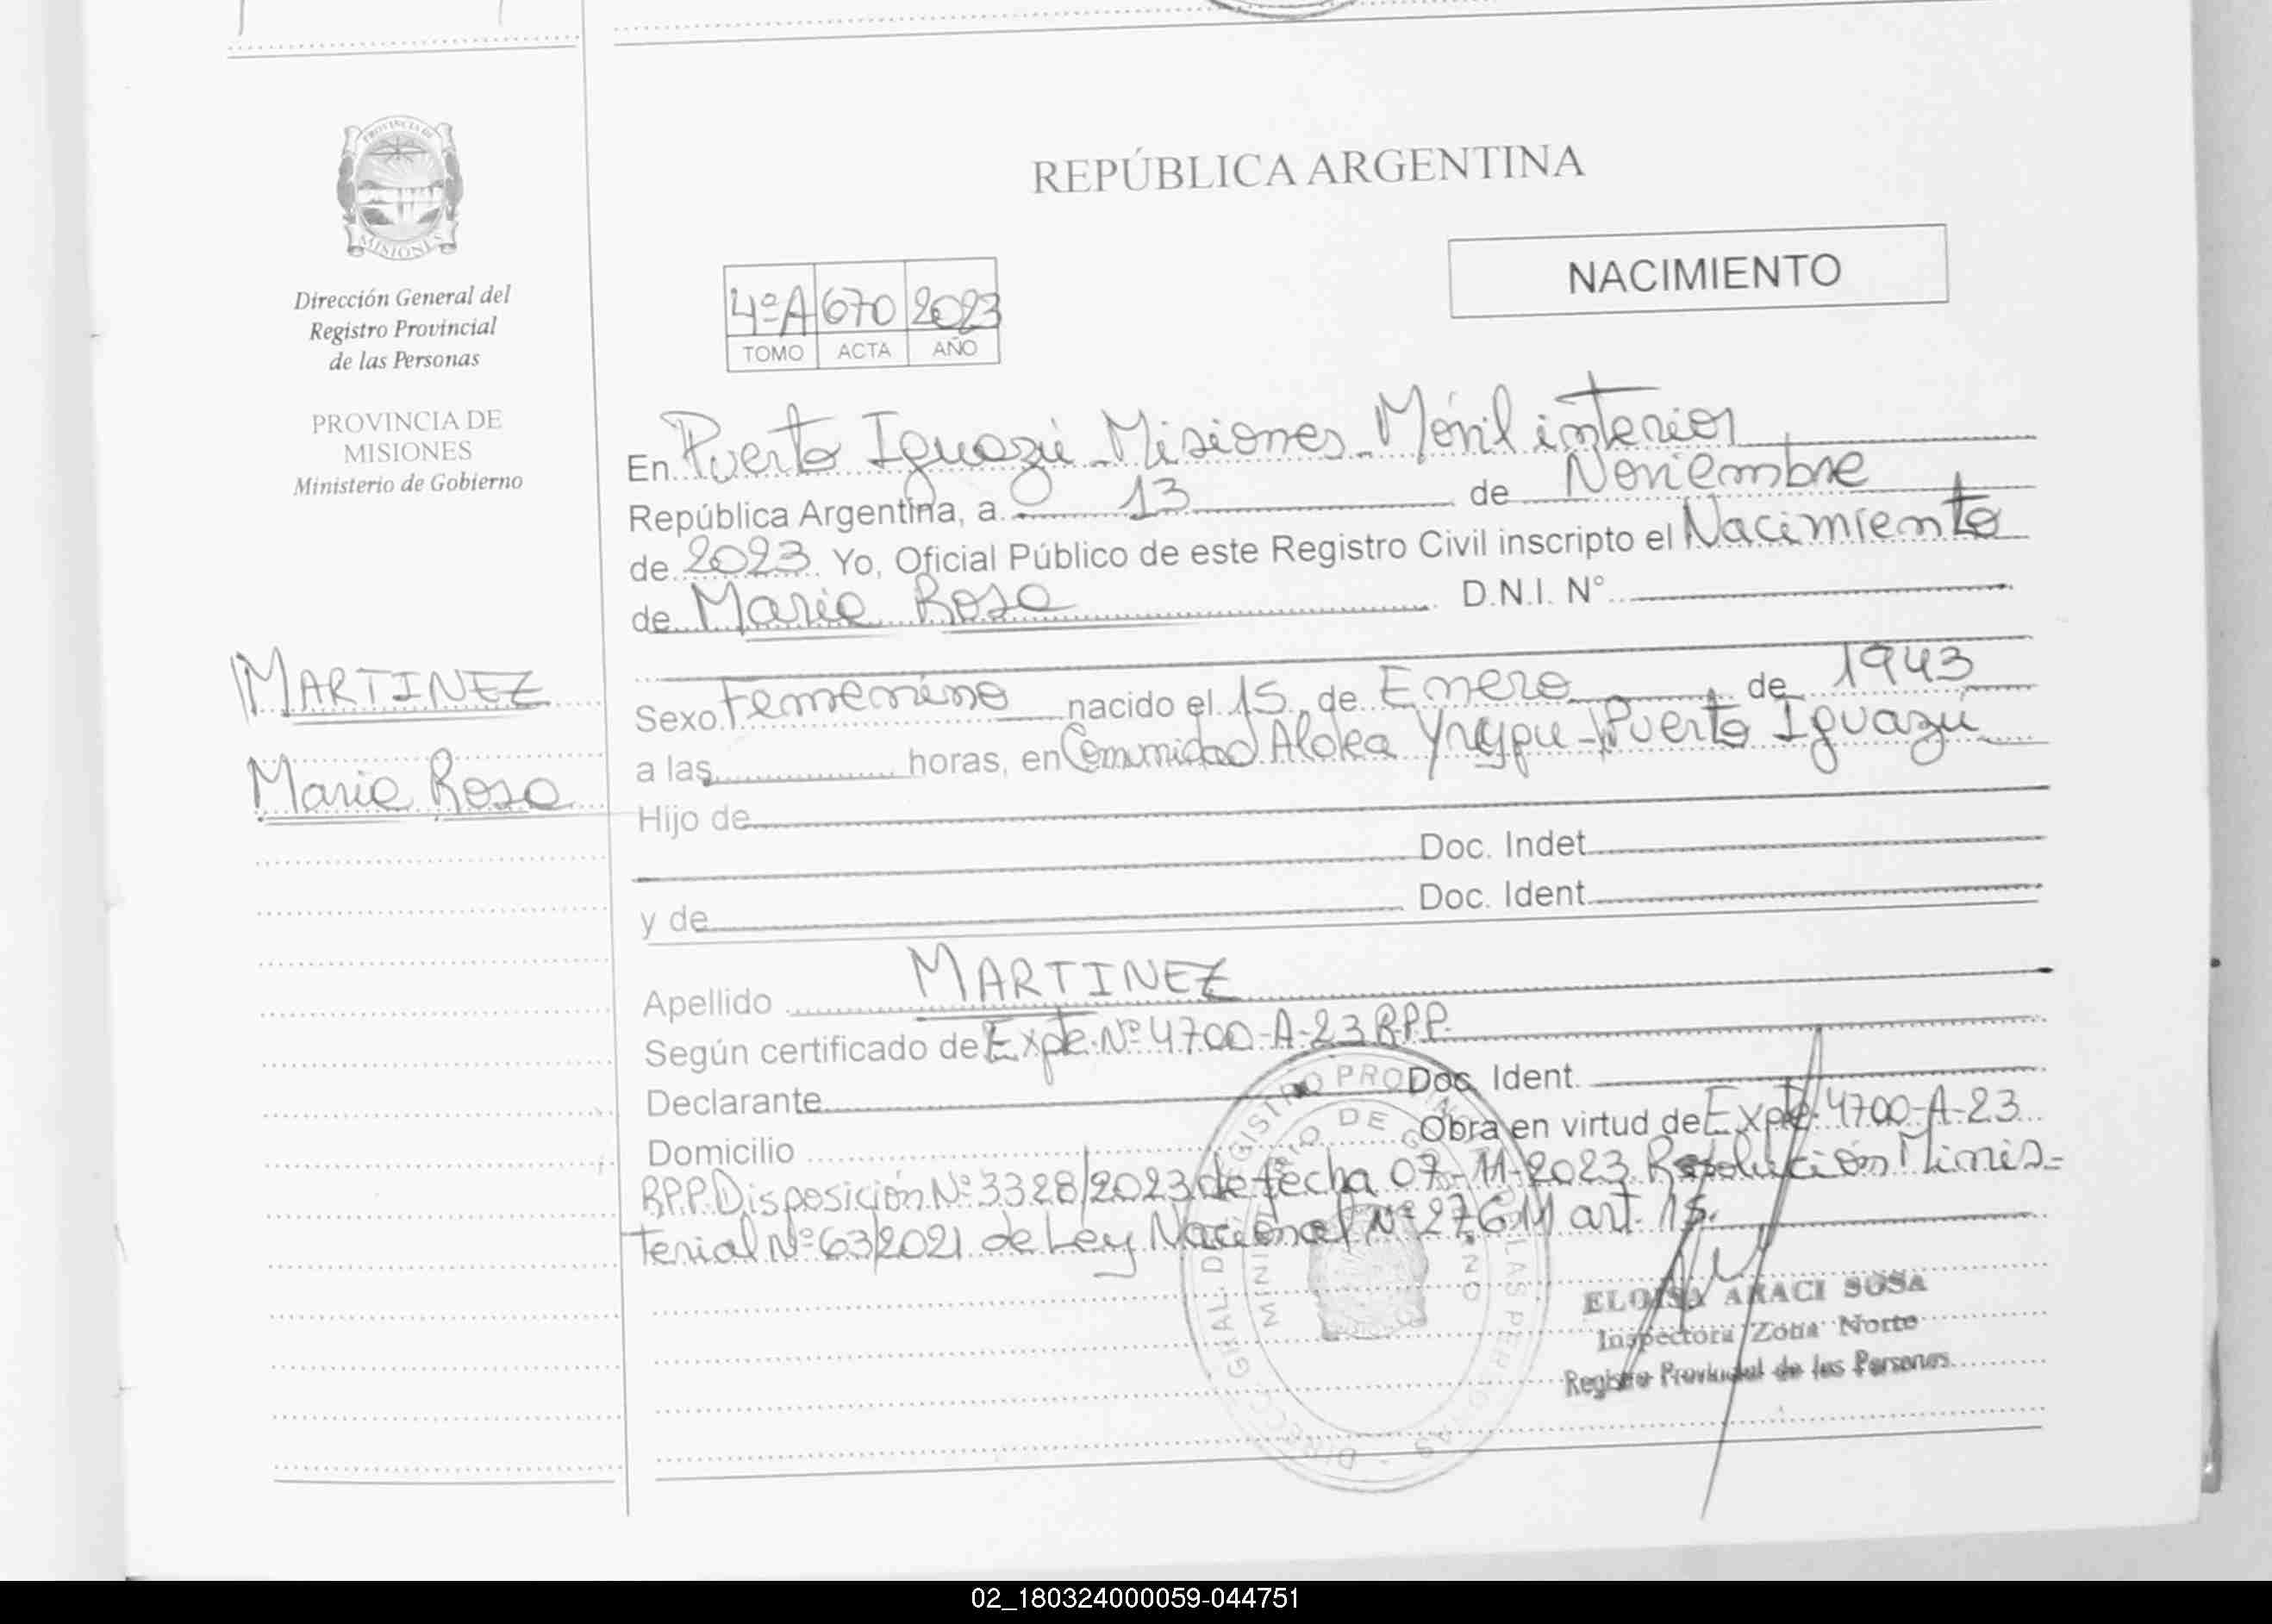 PROVINCIA DE
MISIONES
Dirección General del
Registro Provincial
de las Personas
PROVINCIA DE
MISIONES
Ministerio de Gobierno
MARTINEZ
Maria Rosa
REPÚBLICA ARGENTINA
NACIMIENTO
4ºA 670 2023
TOMO ACTA AÑO
En Puerto Iguazú - Misiones - Móvil interior
República Argentina, a 13 de Noviembre
de 2023 Yo, Oficial Público de este Registro Civil inscripto el Nacimiento
de Maria Rosa D.N.I. N°
Sexo Femenino nacido el 15 de Enero de 1943
a las horas, en Comunidad Aldea Yryapu - Puerto Iguazú
Hijo de
Doc. Indet
y de Doc. Ident
Apellido MARTINEZ
Según certificado de Expte. Nº 4700-A-23 R.P.P.
Declarante Doc. Ident.
Domicilio Obra en virtud de Expte. 4700-A-23
R.P.P. Disposición Nº 3328/2023 de fecha 07-11-2023. Resolución Minis-
terial Nº 63/2021 de Ley Nacional Nº 27611 art. 15.
ELOISA ARACI SOSA
Inspectora Zona Norte
Registro Provincial de las Personas
02_180324000059-044751